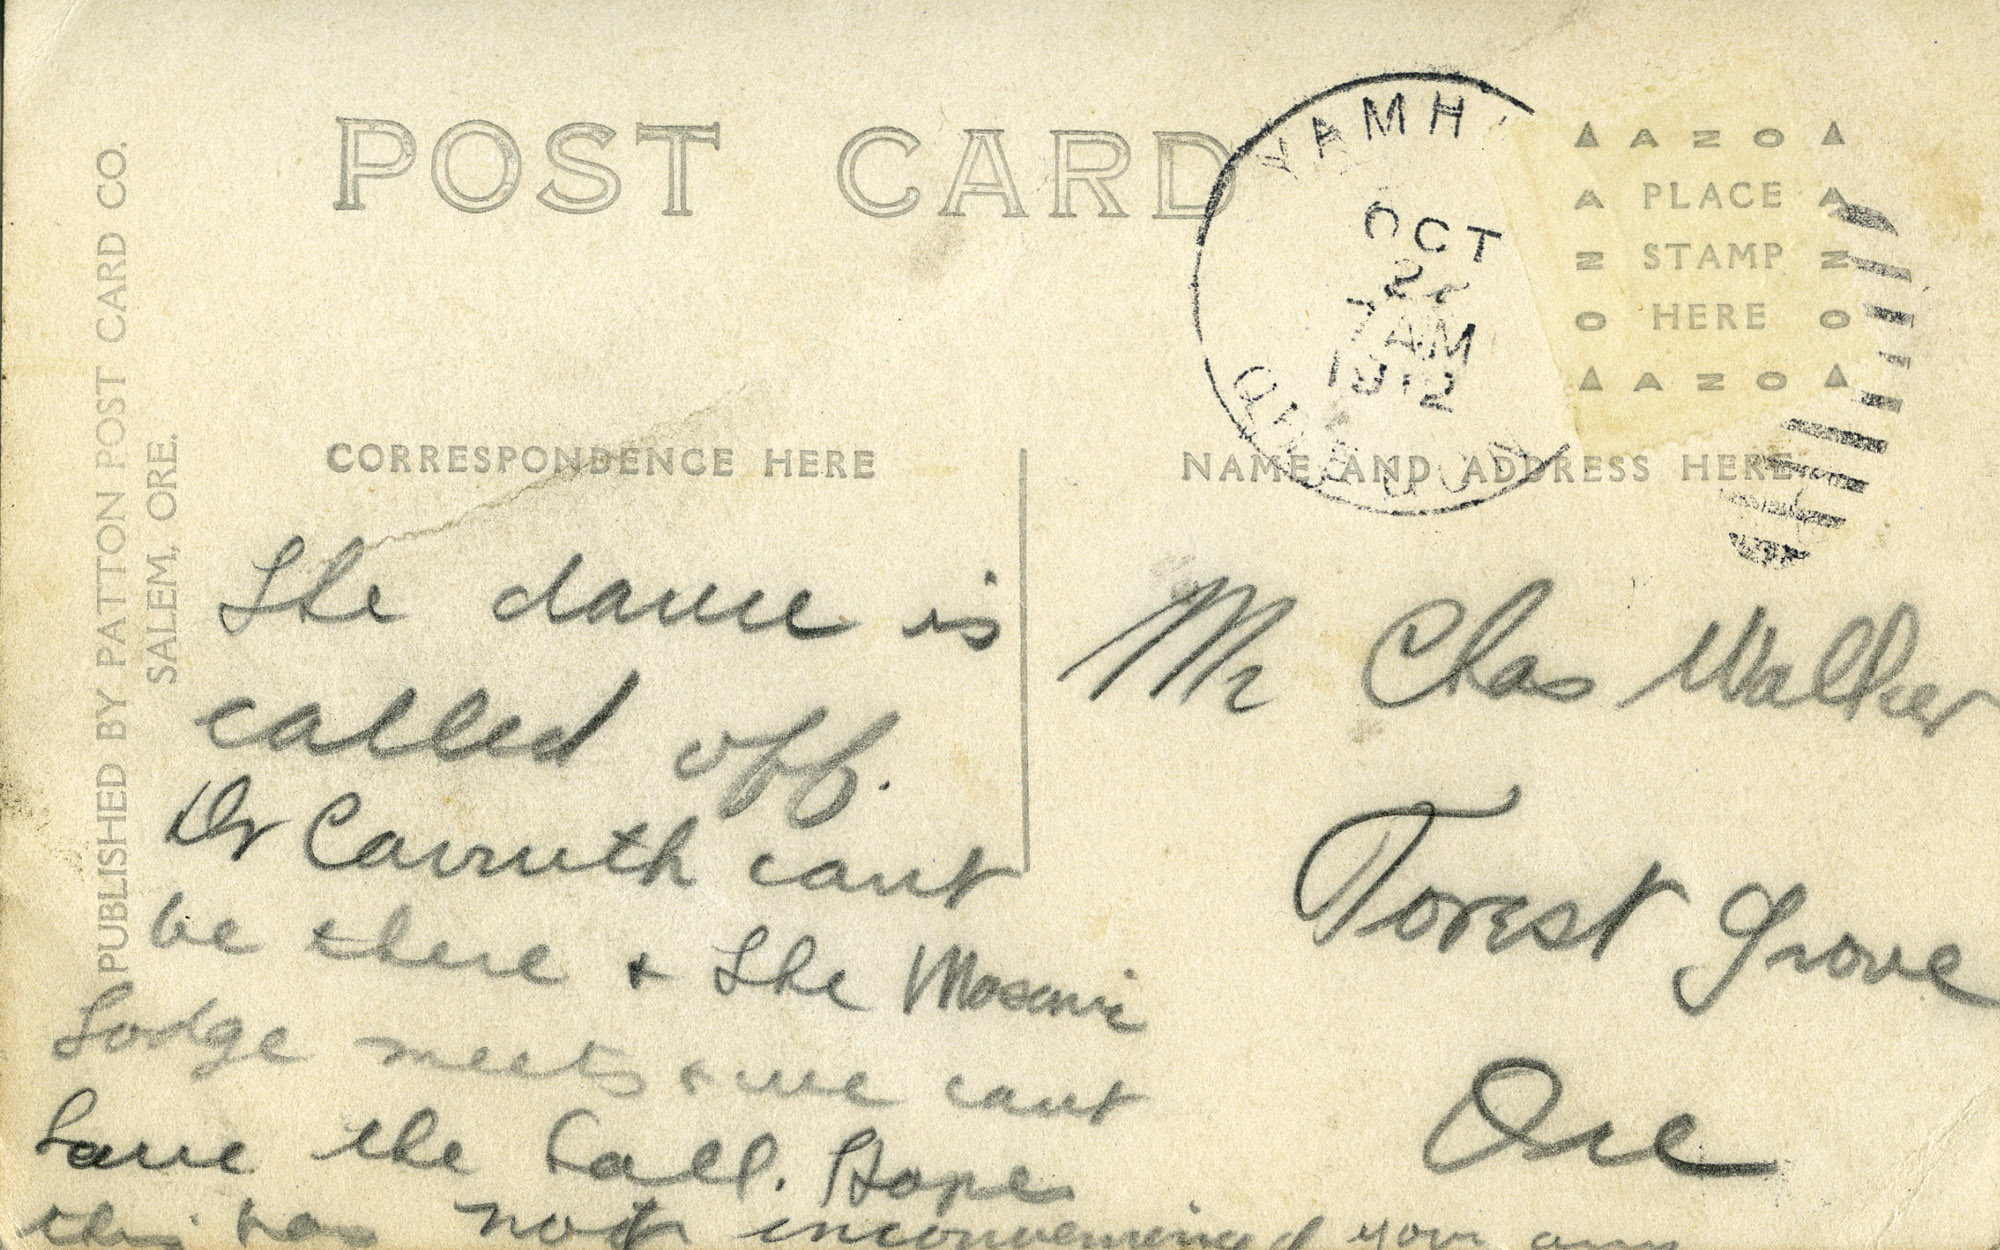 POST CARD
PUBLISHED BY PATTON POST CARD CO.
SALEM, ORE.
YAMH
OCT
7 AM
1912
AZO
PLACE
STAMP
HERE
AZO
CORRESPONDENCE HERE
NAME AND ADDRESS HERE
The dance is
called off.
Dr Carruth cant
be there & the Masonic
Lodge meets & we cant
have the hall. Hope
this has not inconvenienced you any
Mr Chas Walker
Forest Grove
Ore